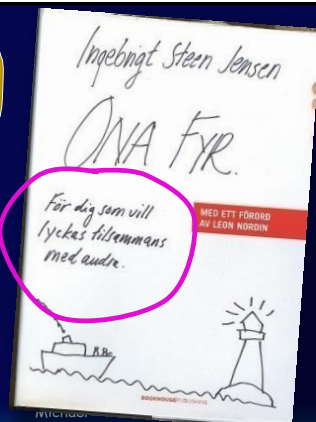 Ingebrigt Steen Jensen
ONA FYR.
För dig som vill
lyckas tillsammans
med andra.
MED ETT FÖRORD
AV LEON NORDIN
BOOKHOUSEPUBLISHING
Michael